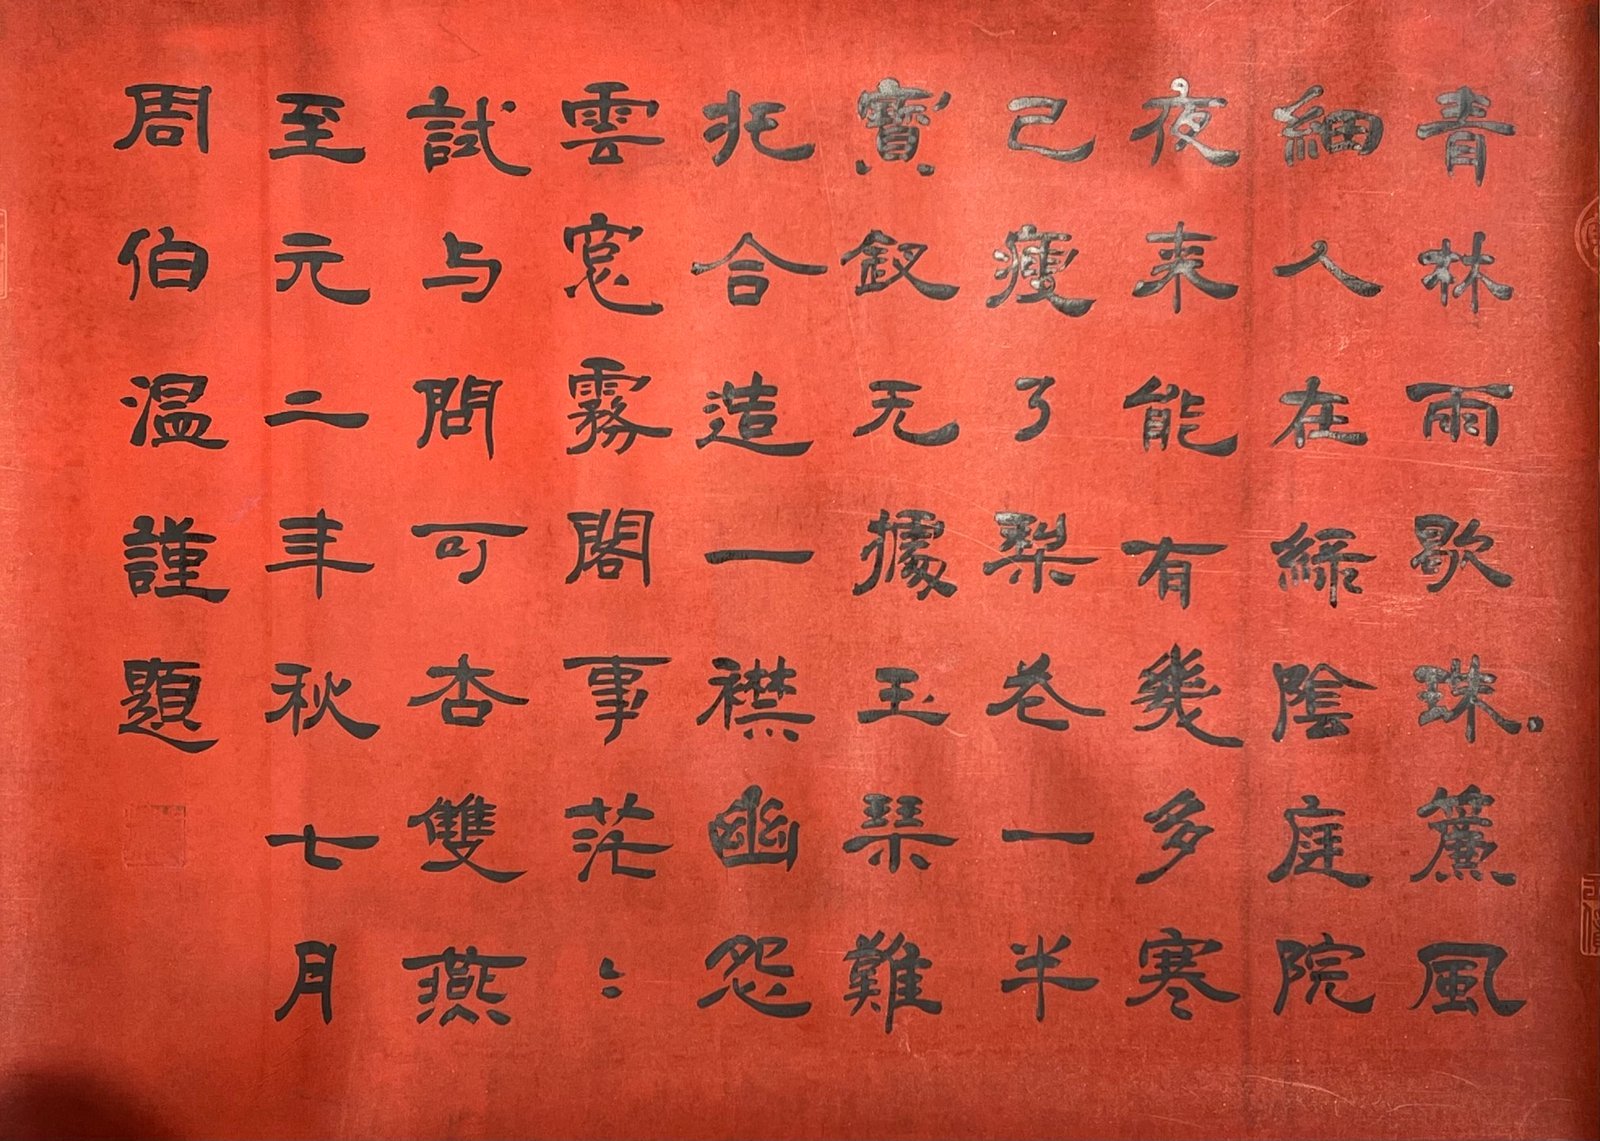 青林雨歇珠簾風
細人在綠陰庭院
夜来能有幾多寒
已瘦了梨花一半
寶釵无據玉琴難
托合造一襟幽怨
雲窓霧閣事茫〻
試与問可杏雙燕
至元二年秋七月
周伯温謹題